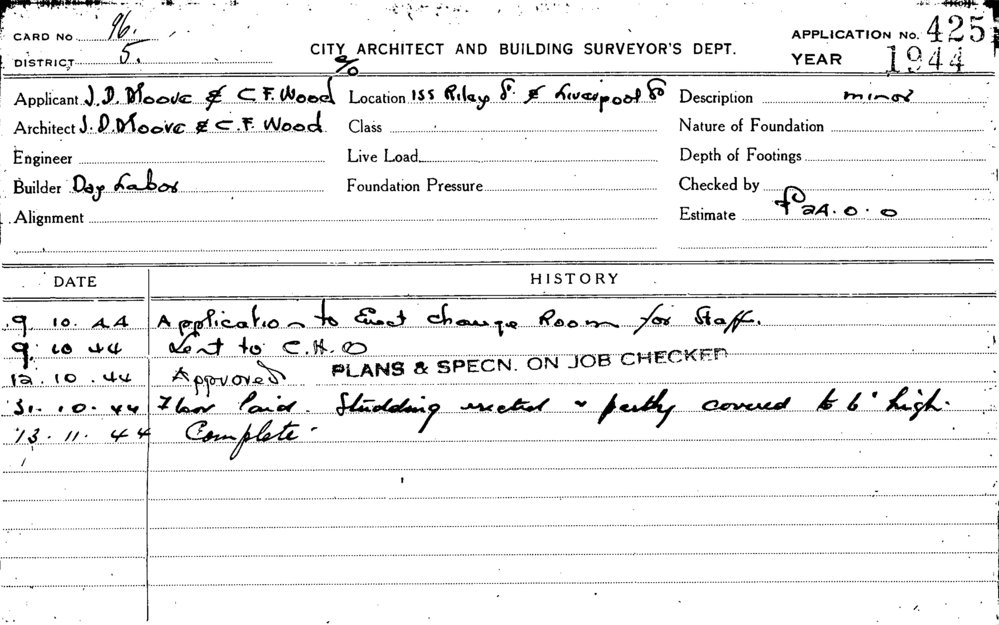 CARD No 96.
APPLICATION No. 425
DISTRICT 5.
CITY ARCHITECT AND BUILDING SURVEYOR'S DEPT.
YEAR 1944
c/o
Applicant J. D. Moore & C F. Wood Location 155 Riley St. & Liverpool St Description minor
Architect J. D. Moore & C. F. Wood Class Nature of Foundation
Engineer Live Load Depth of Footings
Builder Day Labor Foundation Pressure Checked by
Alignment Estimate £24.0.0
DATE HISTORY
9. 10. 44 Application to Erect change Room for Staff.
9. 10 44 Sent to C.H.O
12. 10. 44 Approved PLANS & SPECN. ON JOB CHECKED
31. 10. 44 Floor laid. Studding erected & partly covered to 6' high.
13. 11. 44 Complete.